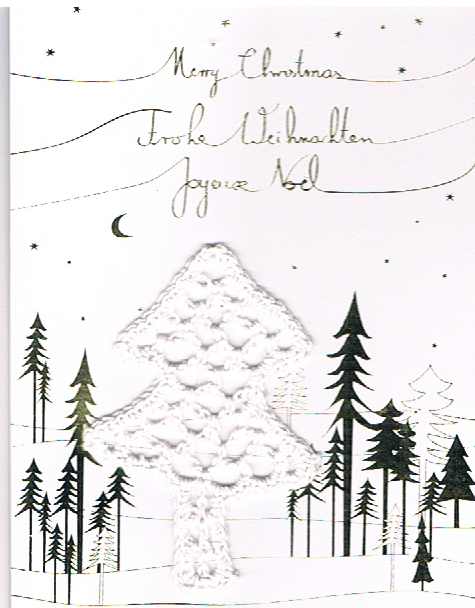 Merry Christmas
Frohe Weihnachten
Joyeux Noel